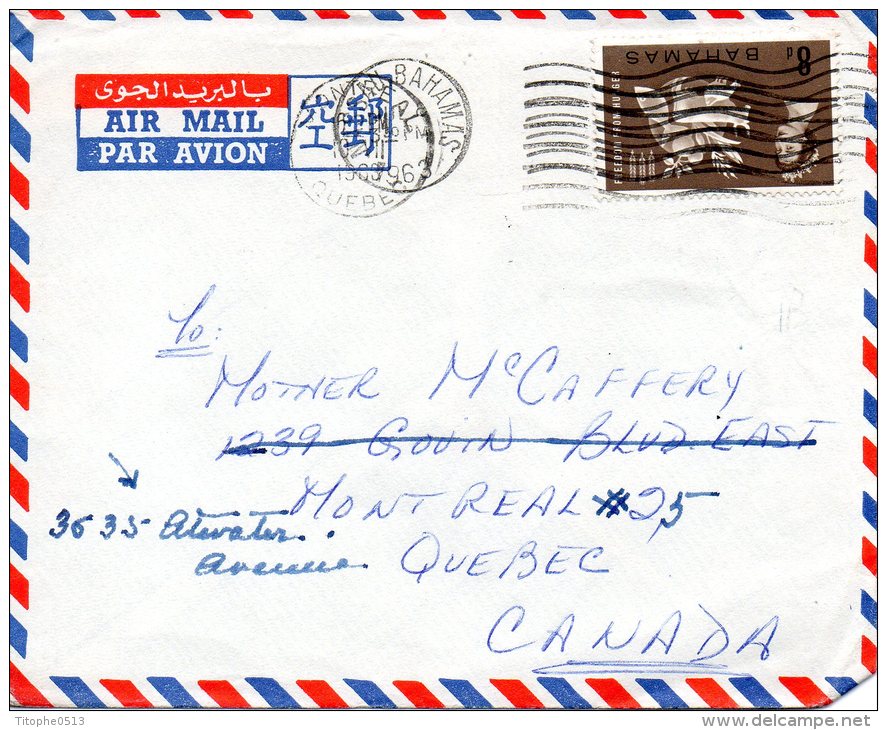 بالبريد الجوي
AIR MAIL
PAR AVION
郵
空
BAHAMAS
1963
QUEBEC
8d
BAHAMAS
FREEDOM FROM HUNGER
To:
MOTHER McCAFFERY
1239 GOUIN BLVD. EAST
MONTREAL 25
3635 Atwater
Avenue
QUEBEC
CANADA
Titophe0513